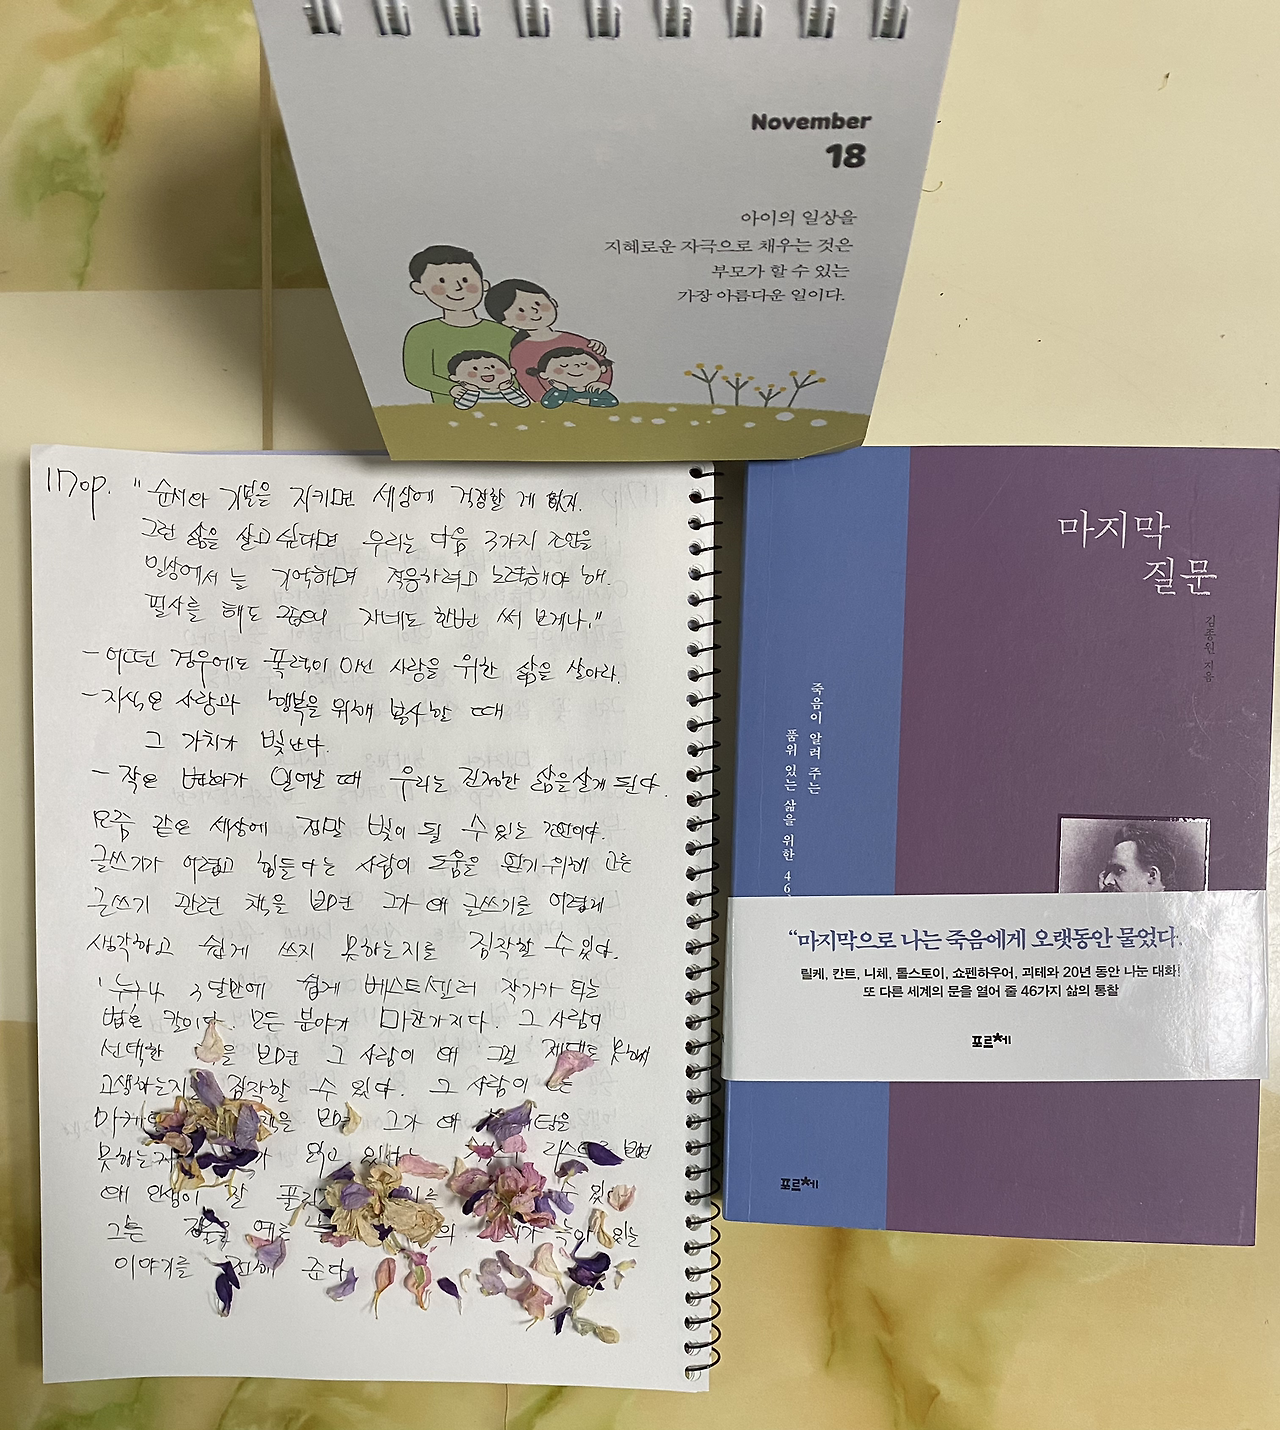 November
18
아이의 일상을
지혜로운 자극으로 채우는 것은
부모가 할 수 있는
가장 아름다운 일이다.
170p. "순서와 기본을 지키면 세상에 걱정할 게 없지.
그런 삶을 살고 싶다면 우리는 다음 3가지 조언을
일상에서 늘 기억하며 적용하려고 노력해야 해.
필사를 해도 좋으니 자네도 한번 써 보게나."
- 어떤 경우에도 폭력이 아닌 사랑을 위한 삶을 살아라.
- 지식은 사랑과 행복을 위해 봉사할 때
그 가치가 빛난다.
- 작은 변화가 일어날 때 우리는 진정한 삶을 살게 된다.
요즘 같은 세상에 정말 빛이 될 수 있는 조언이다.
글쓰기가 어렵고 힘들다는 사람이 도움을 받기 위해 고른
글쓰기 관련 책을 보면 그가 왜 글쓰기를 어렵게
생각하고 쉽게 쓰지 못하는지를 짐작할 수 있다.
'누구나 3달만에 쉽게 베스트셀러 작가가 되는
법'은 말이다. 모든 분야가 마찬가지다. 그 사람이
선택한 보면 그 사람이 왜 그걸 제대로 못해
고생하는지 짐작할 수 있다. 그 사람이
보면 그가 왜
못하는지 읽고 있는 리스트를 보면
왜 인생이 잘 수 있다
그는 늘 녹아 있는
이야기를 전해 준다
마지막
질문
김종원 지음
죽음이 알려 주는
품위 있는 삶을 위한 46
"마지막으로 나는 죽음에게 오랫동안 물었다.
릴케, 칸트, 니체, 톨스토이, 쇼펜하우어, 괴테와 20년 동안 나눈 대화!
또 다른 세계의 문을 열어 줄 46가지 삶의 통찰
포르체
포르체